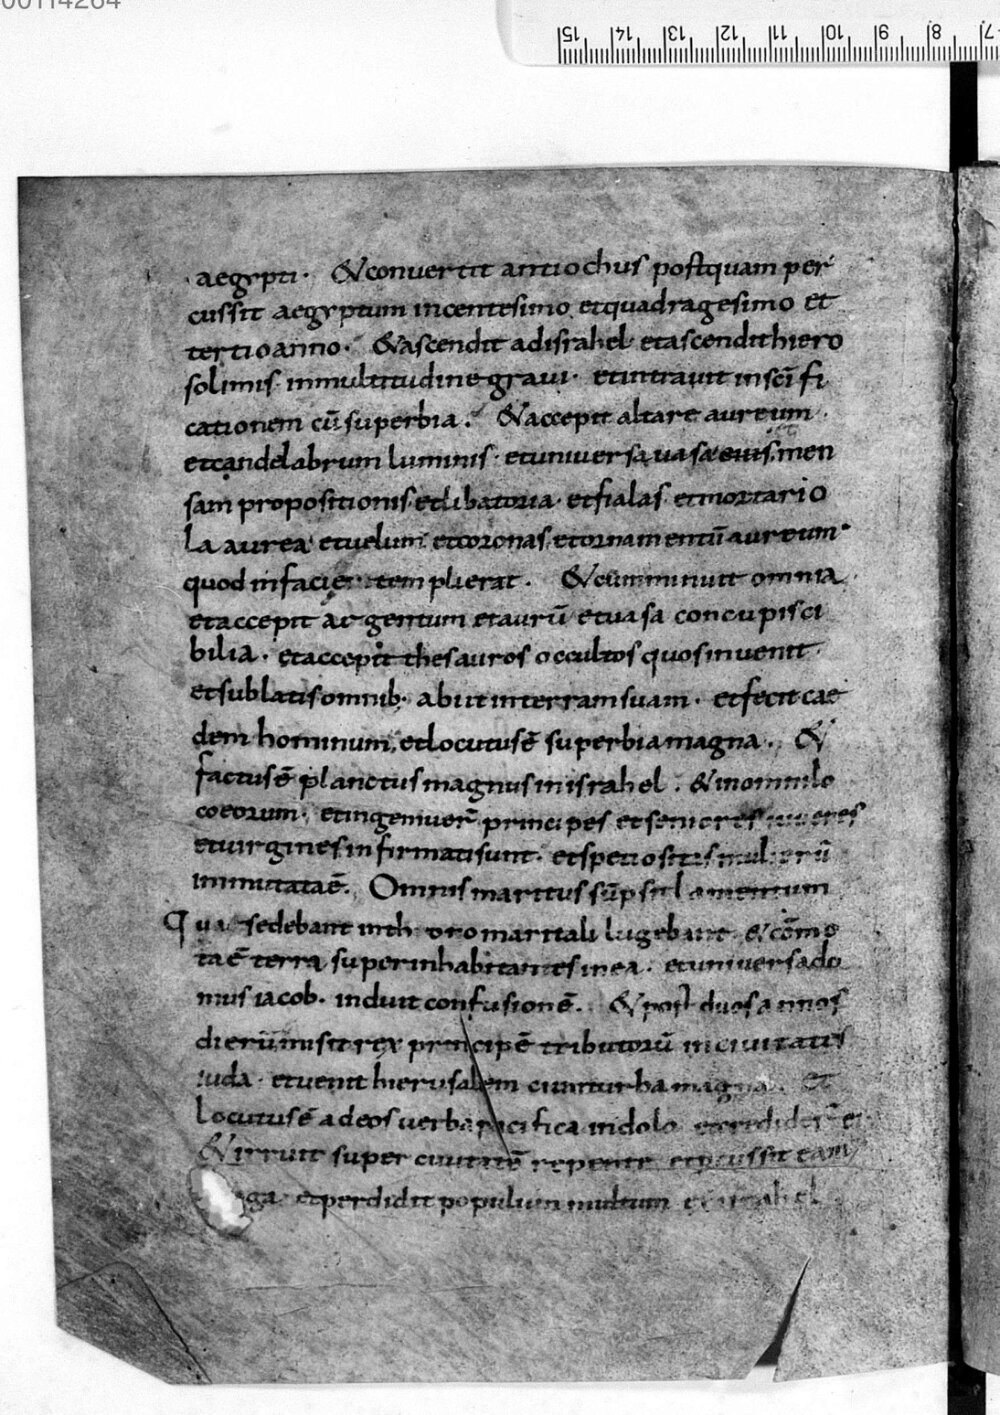 00114264
15 14 13 12 11 10 9 8 7
aegypti · & convertit antiochus postquam per
cussit aegyptum incentesimo etquadragesimo et
tertioanno · & ascendit adisrahel · etascendithiero
solimis · inmultitudine gravi · etintravit inscīfi
cationem cū superbia · & accepit altare aureum ·
etcandelabrum luminis · etuniversa vasa eius, men
sam propositionis · etlibatoria · etfialas etmortario
la aurea etvelum etcoronas etornamentū aureum ·
quod infacie templi erat · & comminuit omnia ·
etaccepit argentum etaurū etvasa concupisci
bilia · etaccepit thesauros occultos quosinvenit ·
etsublatisomnib; abiit interramsuam · etfecit cae
dem hominum, etlocutusē superbiamagna · &
factusē planctus magnus inisrahel · & inomnilo
coeorum · etingemuer̄ principes etseniores iuvenes
etvirgines infirmatisunt · etspetiositas mulierū
immutataē · Omnis maritus sūpsit lamentum
Quae sedebant inthoro maritali lugebant & cōmo
taē terra superinhabitantes inea · etuniversado
mus iacob · induit confusionē · & post duos annos
dierū misit rex principē tributorū incivitatis
iuda · etvenit hierusalem cumturba magna · et
locutusē adeos verba pacifica indolo etcredider̄ ei
& irruit super civitatē repente etpcussit eam
ga · etperdidit populum multum exisrahel